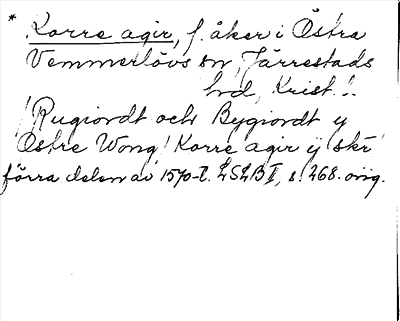 * Korre agir, f. åker i Östra
Vemmerlövs sn, Järrestads
hd, Krist. l.
! Rugiordt och Bygiordt y
Östre Wong! Korre agir y skr
förra delen av 1570-t. LSLB II, s. 268. orig.